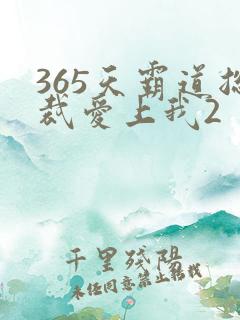 365天霸道总
裁爱上我2
千里残阳
未经同意禁止转载